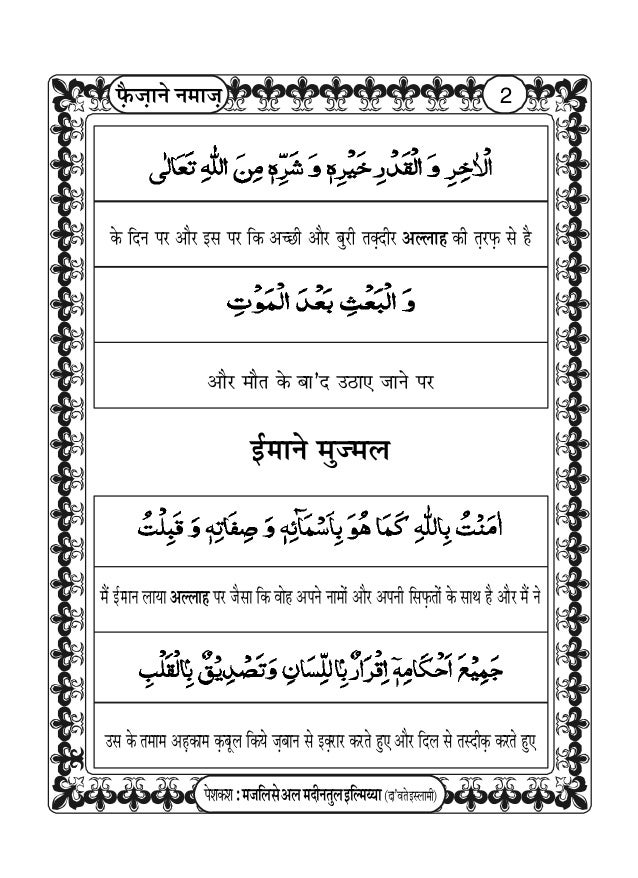 फ़ैज़ाने नमाज़
2
الْاٰخِرِ وَ الْقَدْرِ خَيْرِهٖ وَ شَرِّهٖ مِنَ اللّٰهِ تَعَالٰى
के दिन पर और इस पर कि अच्छी और बुरी तक़्दीर अल्लाह की त़रफ़ से है
وَ الْبَعْثِ بَعْدَ الْمَوْتِ
और मौत के बा'द उठाए जाने पर
ईमाने मुज्मल
اٰمَنْتُ بِاللّٰهِ كَمَا هُوَ بِاَسْمَآئِهٖ وَ صِفَاتِهٖ وَ قَبِلْتُ
मैं ईमान लाया अल्लाह पर जैसा कि वोह अपने नामों और अपनी सिफ़तों के साथ है और मैं ने
جَمِيْعَ اَحْكَامِهٖٓ اِقْرَارٌۢ بِاللِّسَانِ وَتَصْدِيْقٌۢ بِالْقَلْبِ
उस के तमाम अह़काम क़बूल किये ज़बान से इक़्रार करते हुए और दिल से तस्दीक़ करते हुए
पेशकश : मजलिसे अल मदीनतुल इल्मिय्या (दा'वते इस्लामी)